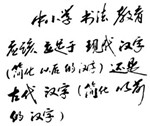 中小学书法教育
应该立足于现代汉字
(简化以后的汉字)还是
古代汉字(简化以前
的汉字)